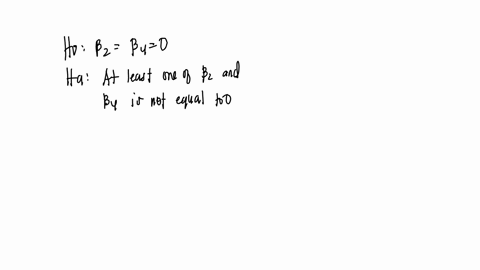 H0: β2 = β4 = 0
Ha: At least one of β2 and
β4 is not equal to 0